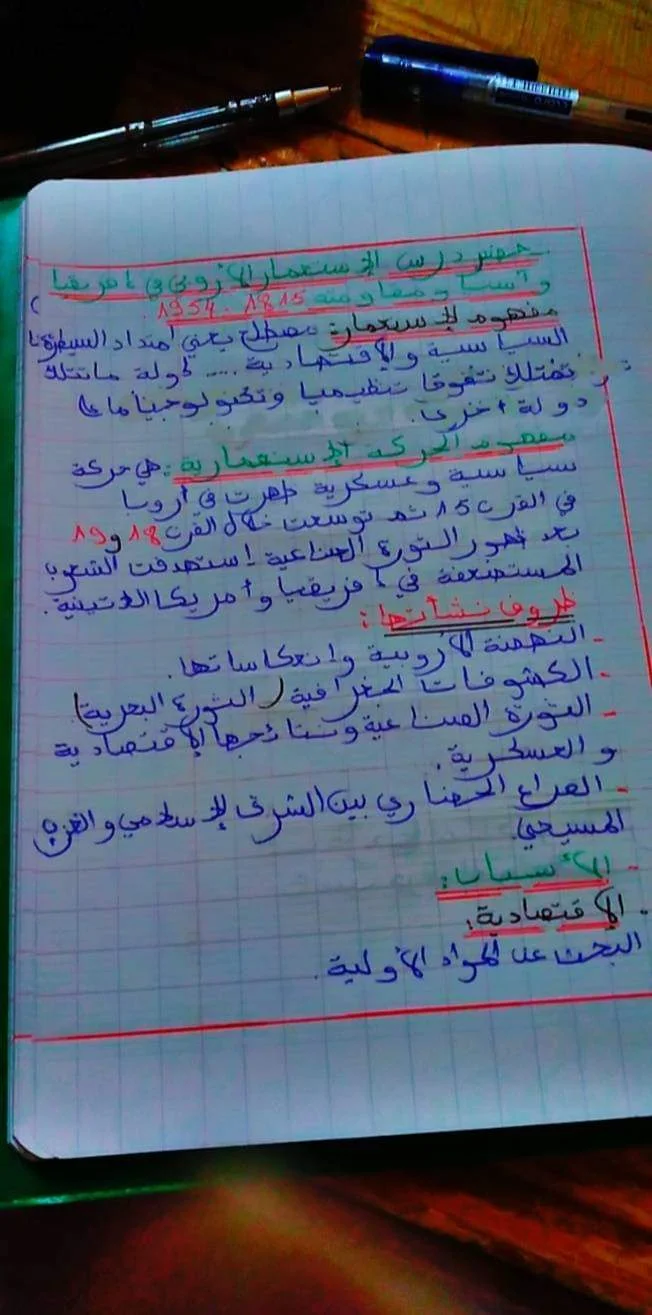 مختصر درس الإستعمار الأوروبي في إفريقيا
وآسيا ومقاومته 1815 - 1954.
مفهوم الإستعمار: مصطلح يعني امتداد السيطرة
السياسية والإقتصادية .... لدولة
تمتلك تفوقا تنظيميا وتكنولوجيا ما على
دولة أخرى.
مفهوم الحركة الإستعمارية: هي حركة
سياسية وعسكرية ظهرت في أروبا
في القرن 15 ثم توسعت خلال القرن 18 و 19
بعد ظهور الثورة الصناعية إستهدفت الشعوب
المستضعفة في إفريقيا وأمريكا اللاتينية.
ظروف نشأتها:
- النهضة الأروبية وانعكاساتها.
- الكشوفات الجغرافية (الثورة البحرية)
- الثورة الصناعية ونتائجها الإقتصادية
و العسكرية.
- الصراع الحضاري بين الشرق الإسلامي والغرب
المسيحي.
- الأسباب:
- الإقتصادية:
البحث عن المواد الأولية.